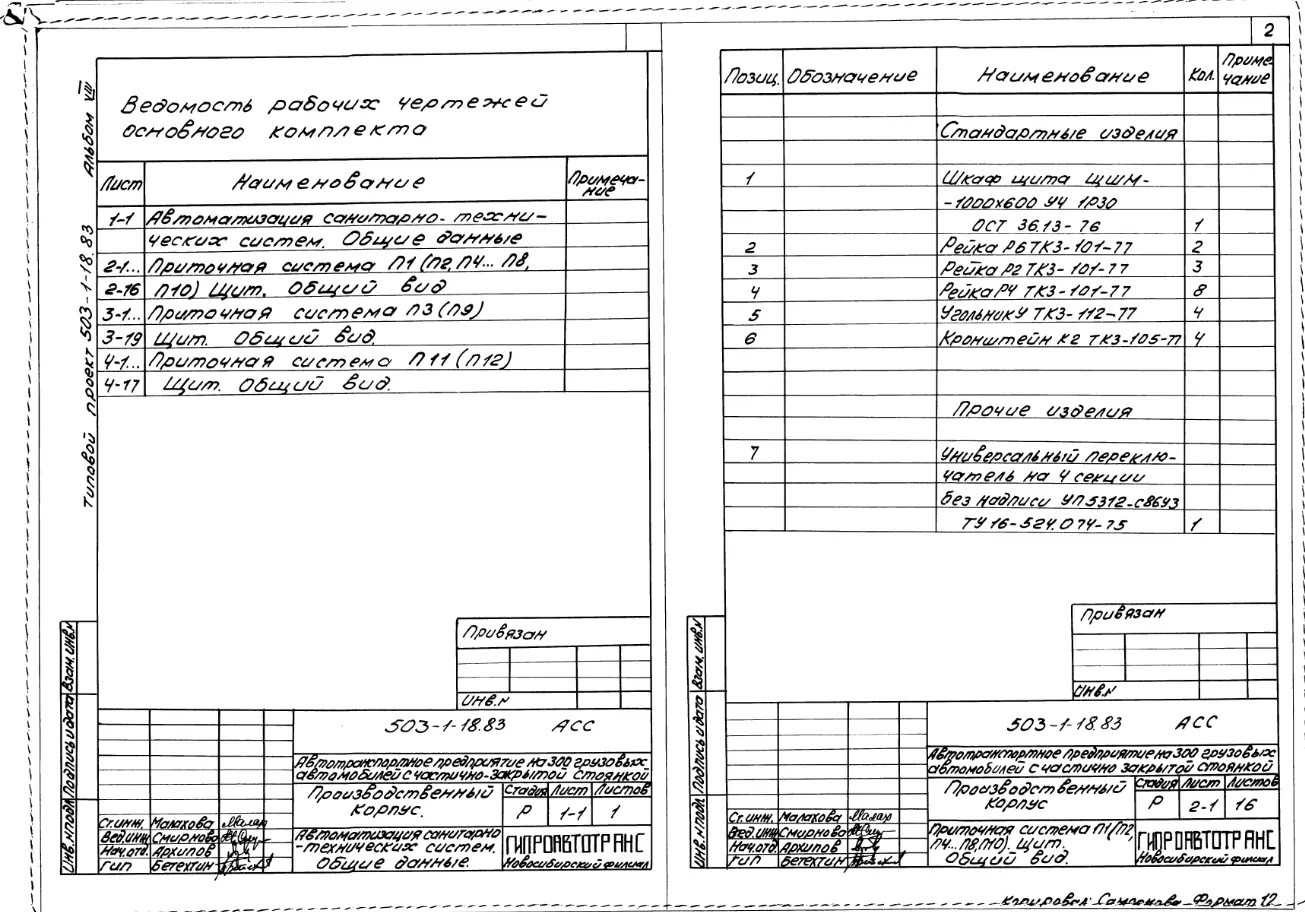 2
Типовой проект 503-1-18.83 Альбом VIII
Ведомость рабочих чертежей
основного комплекта
Лист Наименование Примеча-
ние
1-1 Автоматизация санитарно- техни-
ческих систем. Общие данные
2-1... Приточная система П1 (П2, П4... П8,
2-16 П10) Щит. Общий вид
3-1... Приточная система П3 (П9)
3-19 Щит. Общий вид.
4-1... Приточная система П11 (П12)
4-17 Щит. Общий вид.
Привязан
Инв.№
Инв.№подл. Подпись и дата Взам. инв.№
503-1-18.83 АСС
Автотранспортное предприятие на 300 грузовых
автомобилей с частично-закрытой стоянкой
Производственный
корпус.
Стадия Лист Листов
Р 1-1 1
Ст.инж. Малахова
Вед.инж Смирнова
Нач.отд. Архипов
Гип Бетехтин
Автоматизация санитарно
-технических систем.
Общие данные.
ГИПРОАВТОТРАНС
Новосибирский филиал
Позиц. Обозначение Наименование Кол. Приме
чание
Стандартные изделия
1 Шкаф щита ЩШМ-
-1000х600 У4 1Р30
ОСТ 36.13-76 1
2 Рейка Р6 ТК3-101-77 2
3 Рейка Р2 ТК3-101-77 3
4 Рейка Р4 ТК3-101-77 8
5 Угольник У ТК3-112-77 4
6 Кронштейн К2 ТК3-105-77 4
Прочие изделия
7 Универсальный переклю-
чатель на 4 секции
без надписи УП5312-с86У3
ТУ 16-524.074-75 1
Привязан
Инв.№
Инв.№подл. Подпись и дата Взам. инв.№
503-1-18.83 АСС
Автотранспортное предприятие на 300 грузовых
автомобилей с частично закрытой стоянкой
Производственный
корпус
Стадия Лист Листов
Р 2-1 16
Ст.инж. Малахова
Вед.инж Смирнова
Нач.отд Архипов
Гип Бетехтин
Приточная система П1 (П2,
П4...П8, П10). Щит.
Общий вид.
ГИПРОАВТОТРАНС
Новосибирский филиал
Копировал: Формат 12